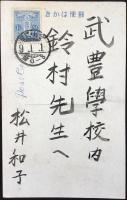 郵便はがき
武豊學校内
鈴村先生へ
松井和子